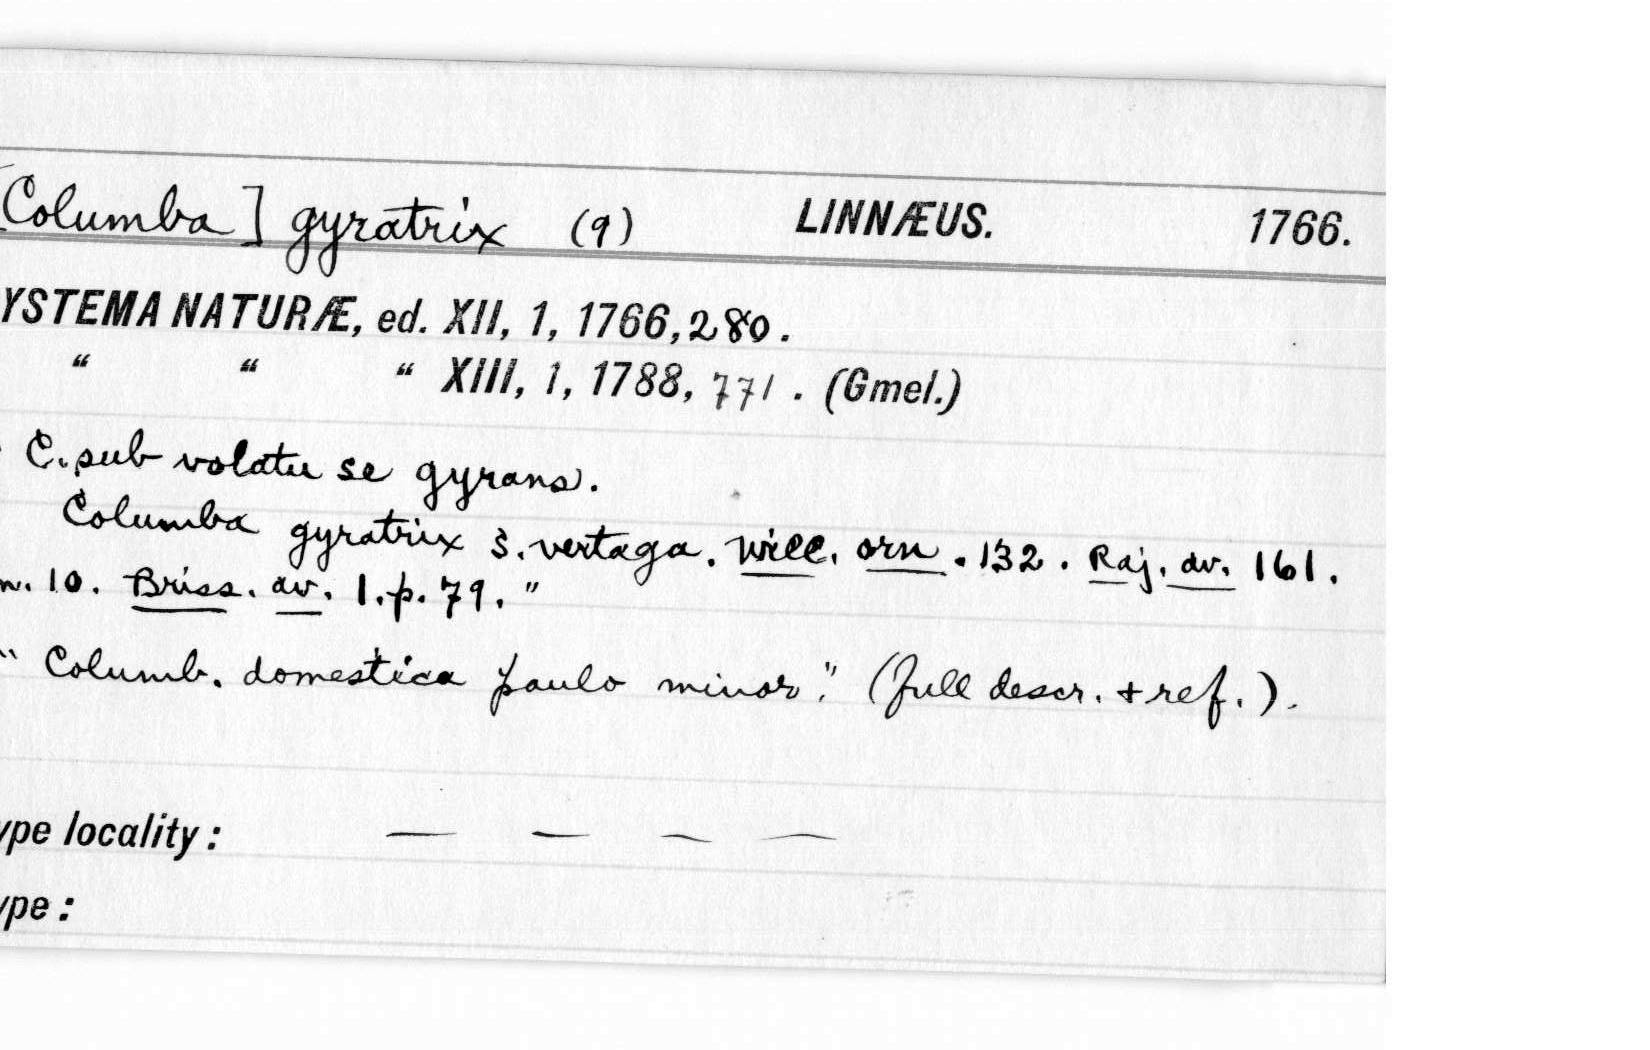 [Columba] gyratrix (9) LINNÆUS. 1766.
YSTEMA NATURÆ, ed. XII, 1, 1766, 280.
“ “ “ XIII, 1, 1788, 771. (Gmel.)
C. sub volatu se gyrans.
Columba gyratrix s. vertaga. Will. orn. 132. Raj. av. 161.
n. 10. Briss. av. 1. p. 79."
"Columb. domestica paulo minor." (full descr. + ref.).
ype locality: — — — —
ype: